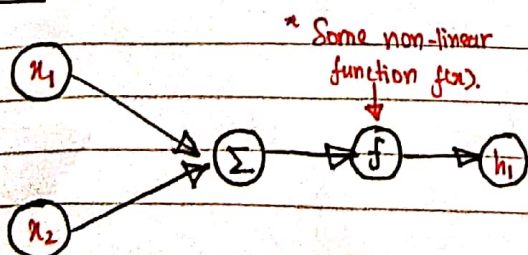 * Some non-linear
function f(x).
x₁
Σ
f
h₁
x₂